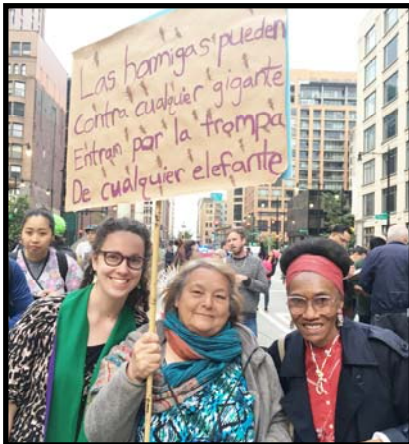 Las hormigas pueden
Contra cualquier gigante
Entran por la trompa
De cualquier elefante